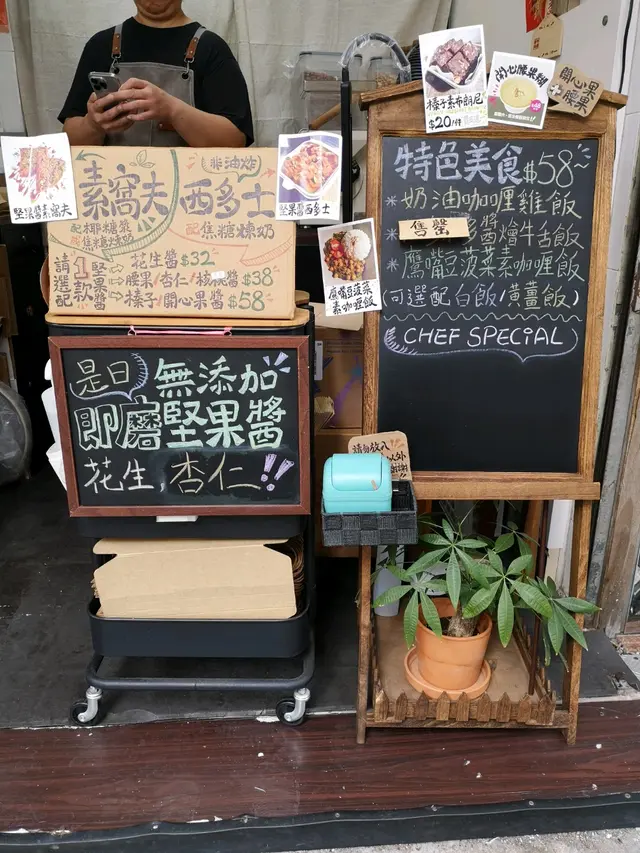 堅果醬素窩夫
素窩夫
配椰糖漿
或焦糖燒漿
非油炸
西多士
配焦糖爆奶
請選配
1款
堅果醬
花生醬$32
腰果/杏仁/核桃醬$38
榛子/開心果醬$58
堅果醬西多士
鷹嘴豆菠菜
素咖喱飯
榛子素布朗尼
$20/件
開心腰果糊
開心果
+
腰果
特色美食$58~
*奶油咖喱雞飯
*售罄醬燴牛舌飯
*鷹嘴豆菠菜素咖喱飯
(可選配白飯/黃薑飯)
CHEF SPECIAL
是日
無添加
即磨堅果醬
花生,杏仁!!
請勿放入
以外